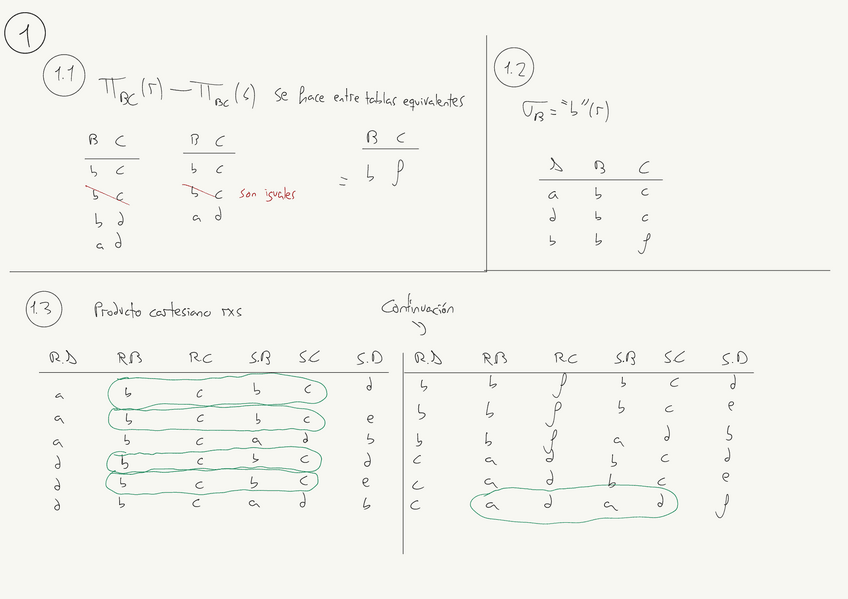 1
1.1
π BC (r) — π BC (s) se hace entre tablas equivalentes
B C B C B C
b c b c = b f
b c b c son iguales
b d a d
a d
1.2
σB="b"(r)
A B C
a b c
d b c
b b f
1.3 Producto cartesiano rxs
R.A R.B R.C S.B S.C S.D
a b c b c d
a b c b c e
a b c a d b
d b c b c d
d b c b c e
d b c a d b
Continuación
R.A R.B R.C S.B S.C S.D
b b f b c d
b b f b c e
b b f a d b
c a d b c d
c a d b c e
c a d a d f